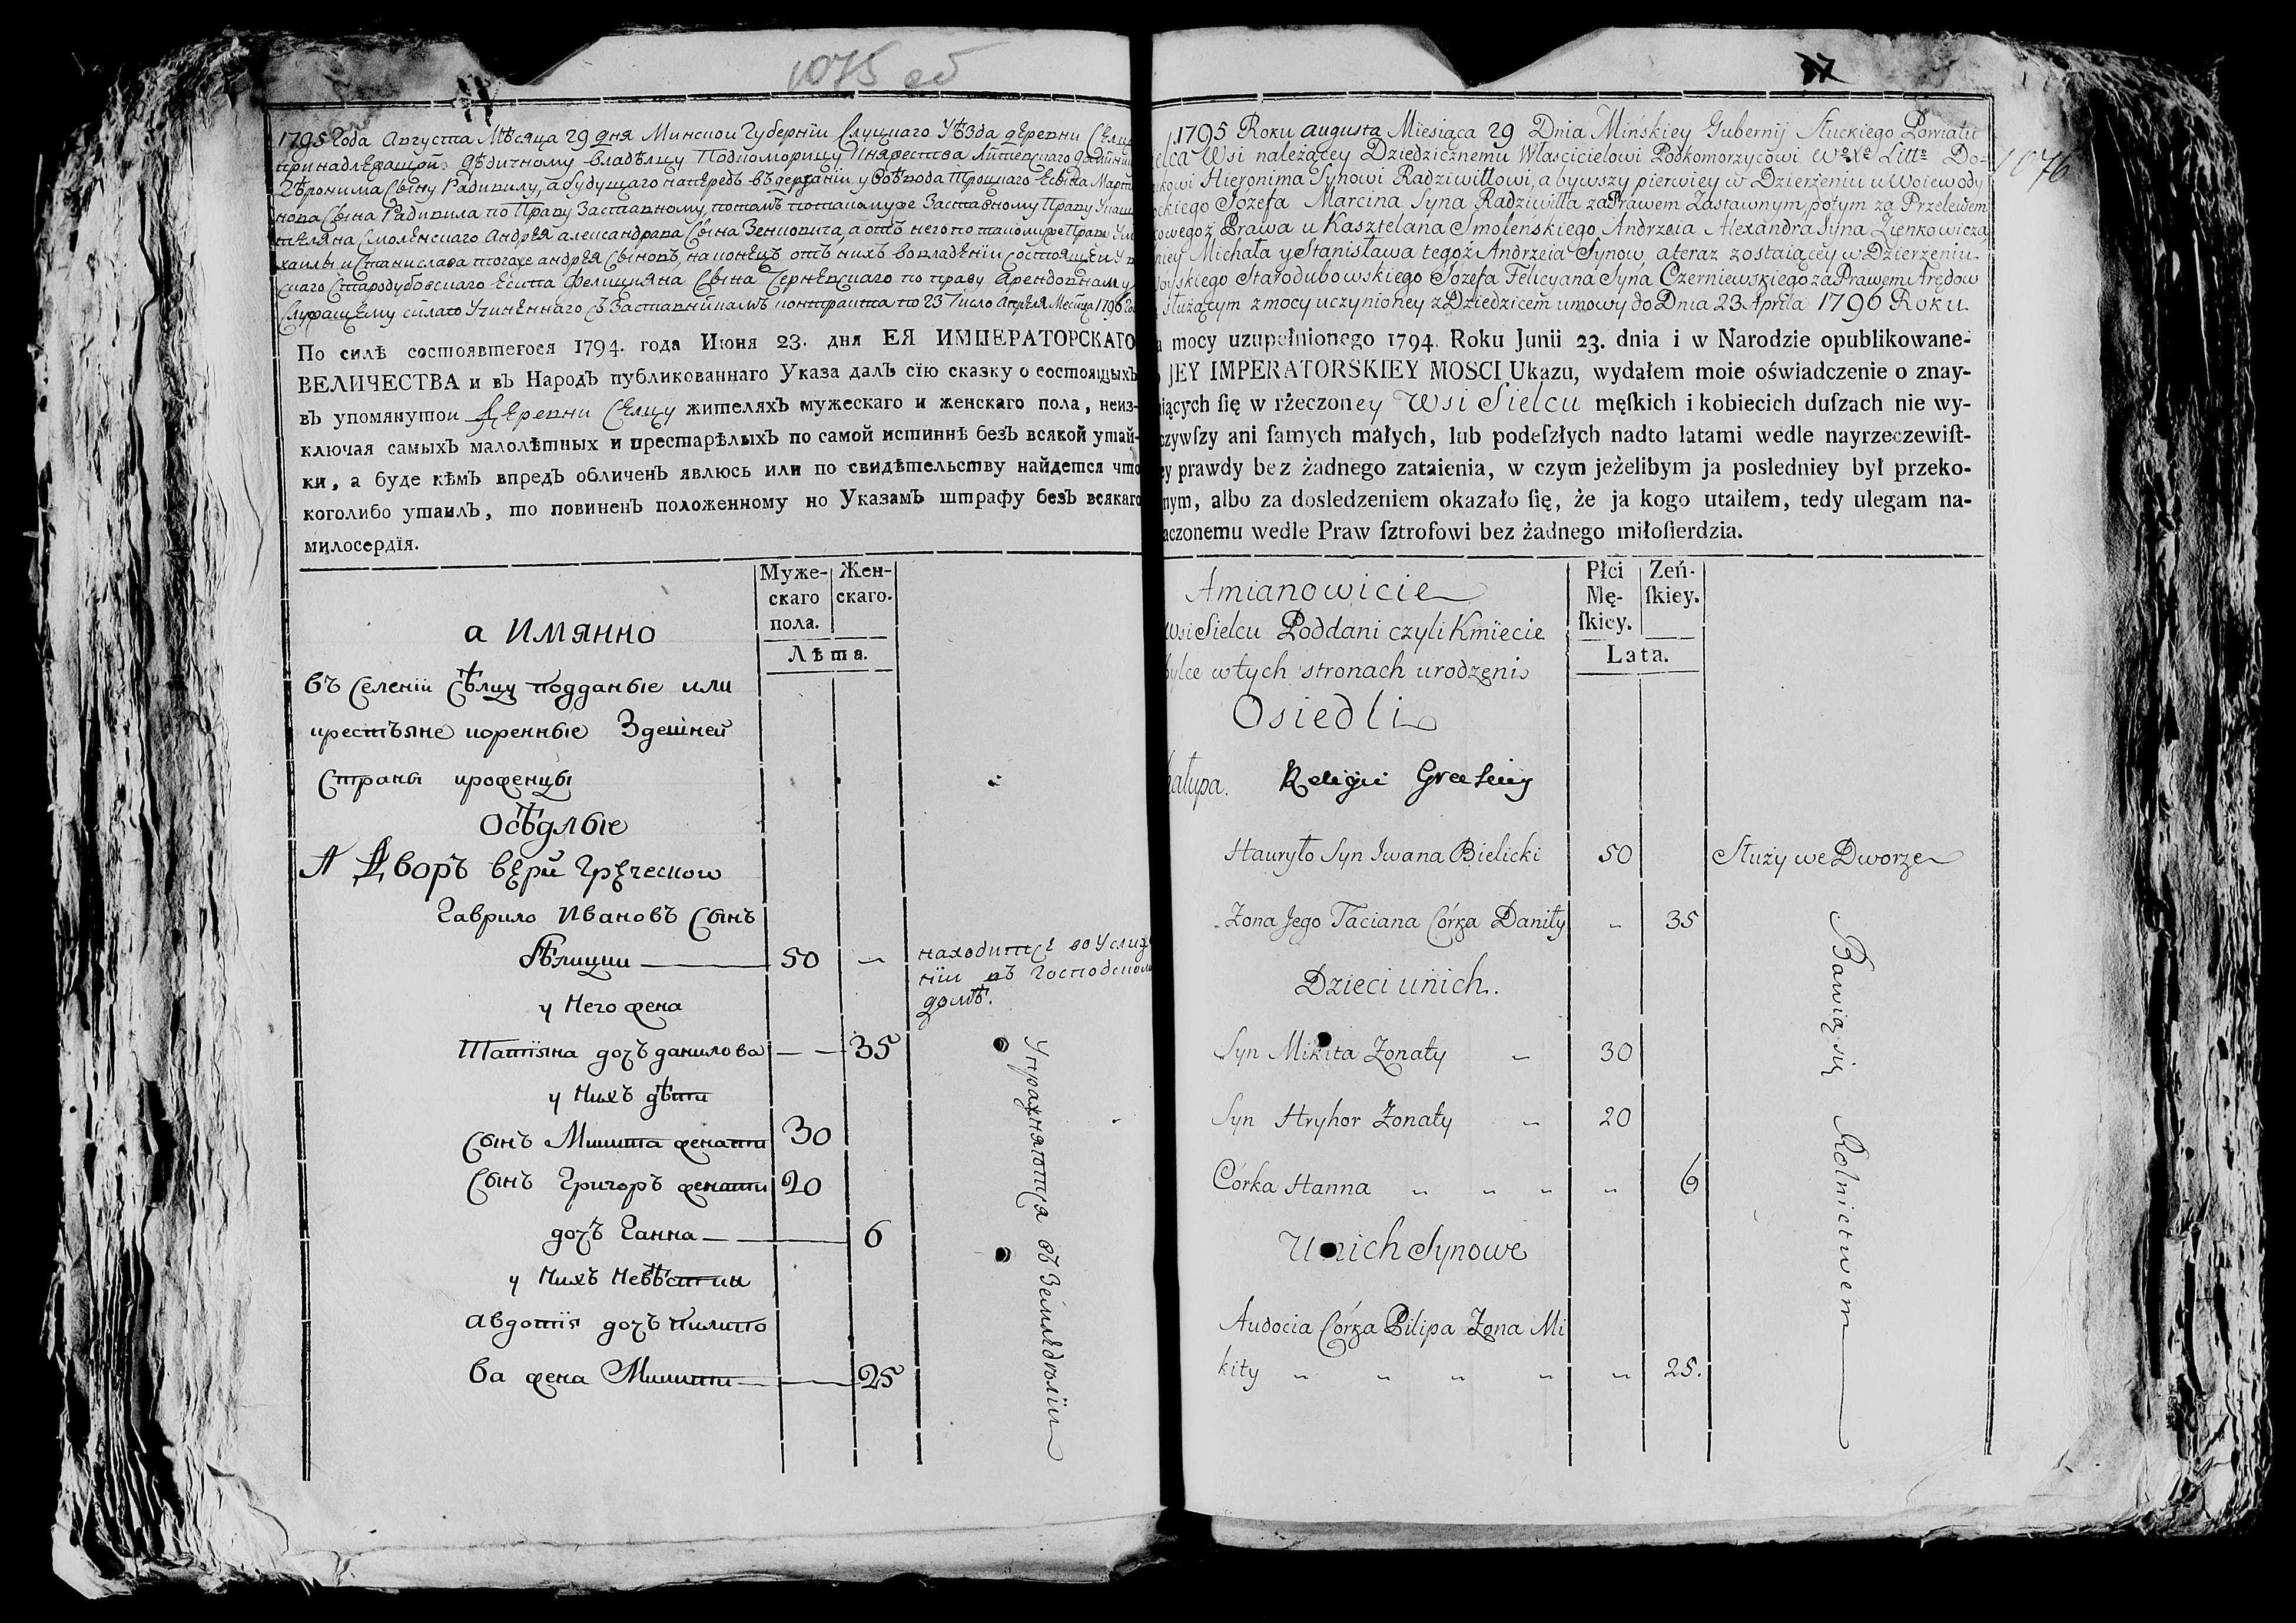 1075 об
1795 Года Августа Мѣсяца 29 дня Минской Губернїи Слуцкаго Уѣзда деревни Сѣлца
принадлежащей дѣдичному владѣлцу Подкоморицу Княжества Литевскаго
Іѣронима Сыну Радивилу, а будущаго напередъ въ держанїи у Воѣвода Троцкаго Есифа Марти
нова Сына Радивила по Праву Заставному, потомъ потакомуже Заставному Праву
Смоленскаго Андрея александрава Сына Зенковича, а отъ него по такомуже Праву
хаилы и Станислава тогоже андрея Сыновъ, наконецъ отъ нихъ во владенїи состоящей
скаго Стародубовскаго Есипа Фелицияна Сына Черневскаго по праву Арендовному
Служащему силаю Учиненнаго Съ контракта по 23 Число Апреля Месеца 1796 Год
По силѣ состоявшегося 1794. года Июня 23. дня ЕЯ ИМПЕРАТОРСКАГО
ВЕЛИЧЕСТВА и въ Народъ публикованнаго Указа далъ сїю сказку о состоящыхъ
въ упомянутои деревни Сѣлцу жителяхъ мужескаго и женскаго пола, неиз-
ключая самыхъ малолѣтныхъ и престарѣлыхъ по самой истиннѣ безъ всякой утай-
ки, а буде кѣмъ впредъ обличенъ явлюсь или по свидѣтельству найдется что
коголибо утаилъ, то повиненъ положенному но Указамъ штрафу безъ всякаго
милосердїя.
Муже- Жен-
скаго скаго.
пола.
Лѣта.
а имянно
въ Селенїи Сѣлцу подданые или
крестъяне коренные Здешней
Страны уроженцы
Осѣдлые
Дворъ вери Греческого
Гаврило Ивановъ Сынъ
Бѣлицки 50 находитсе во Услуже
нїи въ Господском
домѣ.
у Него жена
Татїяна дочъ данилова 35
у Нихъ дѣти
Сынъ Микита женати 30
Сынъ Григоръ женати 20
дочъ Ганна 6
у Нихъ Невѣстки
авдотїя дочъ пилипо
ва жена Микити 25
Упражняютца въ Земледѣлїи
37
1076
1795 Roku augusta Miesiąca 29 Dnia Mińskiey Gubernij Słuckiego Powiatu
Wsi należącey Dziedzicznemu Włascicielowi Podkomorzycowi Wo Xo Litto Do-
Hieronima Synowi Radziwiłłowi, a bywszy pierwiey w Dzierżeniu u Woiewody
Jozefa Marcina Syna Radziwiłła za Prawem Zastawnym, potym za Przelewem
Prawa u Kasztelana Smoleńskiego Andrzeia Alexandra Syna Zienkowicza
Michała y Stanisława tegoż Andrzeia Synow, a teraz zostaiącey w Dzierżeniu
Starodubowskiego Jozefa Felicyana Syna Czerniewskiego za Prawem Arędow
służącym z mocy uczynioney z Dziedzicem umowy do Dnia 23 Aprila 1796 Roku
mocy uzupełnionego 1794. Roku Junii 23. dnia i w Narodzie opublikowane-
JEY IMPERATORSKIEY MOSCI Ukazu, wydałem moie oświadczenie o znay-
iących ſię w rżeczoney Wsi Sielcu męſkich i kobiecich duſzach nie wy-
czywſzy ani ſamych małych, lub podeſzłych nadto latami wedle nayrzeczewiſt-
ey prawdy bez żadnego zataienia, w czym jeżelibym ja posledniey był przeko-
nym, albo za dosledzeniem okazało ſię, że ja kogo utaiłem, tedy ulegam na-
aczonemu wedle Praw ſztrofowi bez żadnego miłoſierdzia.
Płci Zeń-
Mę- ſkiey.
ſkiey.
Lata.
Amianowicie
Wsi Sielcu Poddani czyli Kmiecie
w tych stronach urodzeni
Osiedli
hałupa. Religii Greckiey
Hauryło Syn Jwana Bielicki 50 Służy we Dworze
Zona Jego Taciana Córka Daniły „ 35
Dzieci unich.
Syn Mikita Zonaty „ 30
Syn Hryhor Zonaty „ 20
Córka Hanna „ „ „ „ 6
Unich Synowe
Audocia Córka Pilipa Zona Mi
kity „ „ „ „ „ 25.
Bawią się Rolnictwem